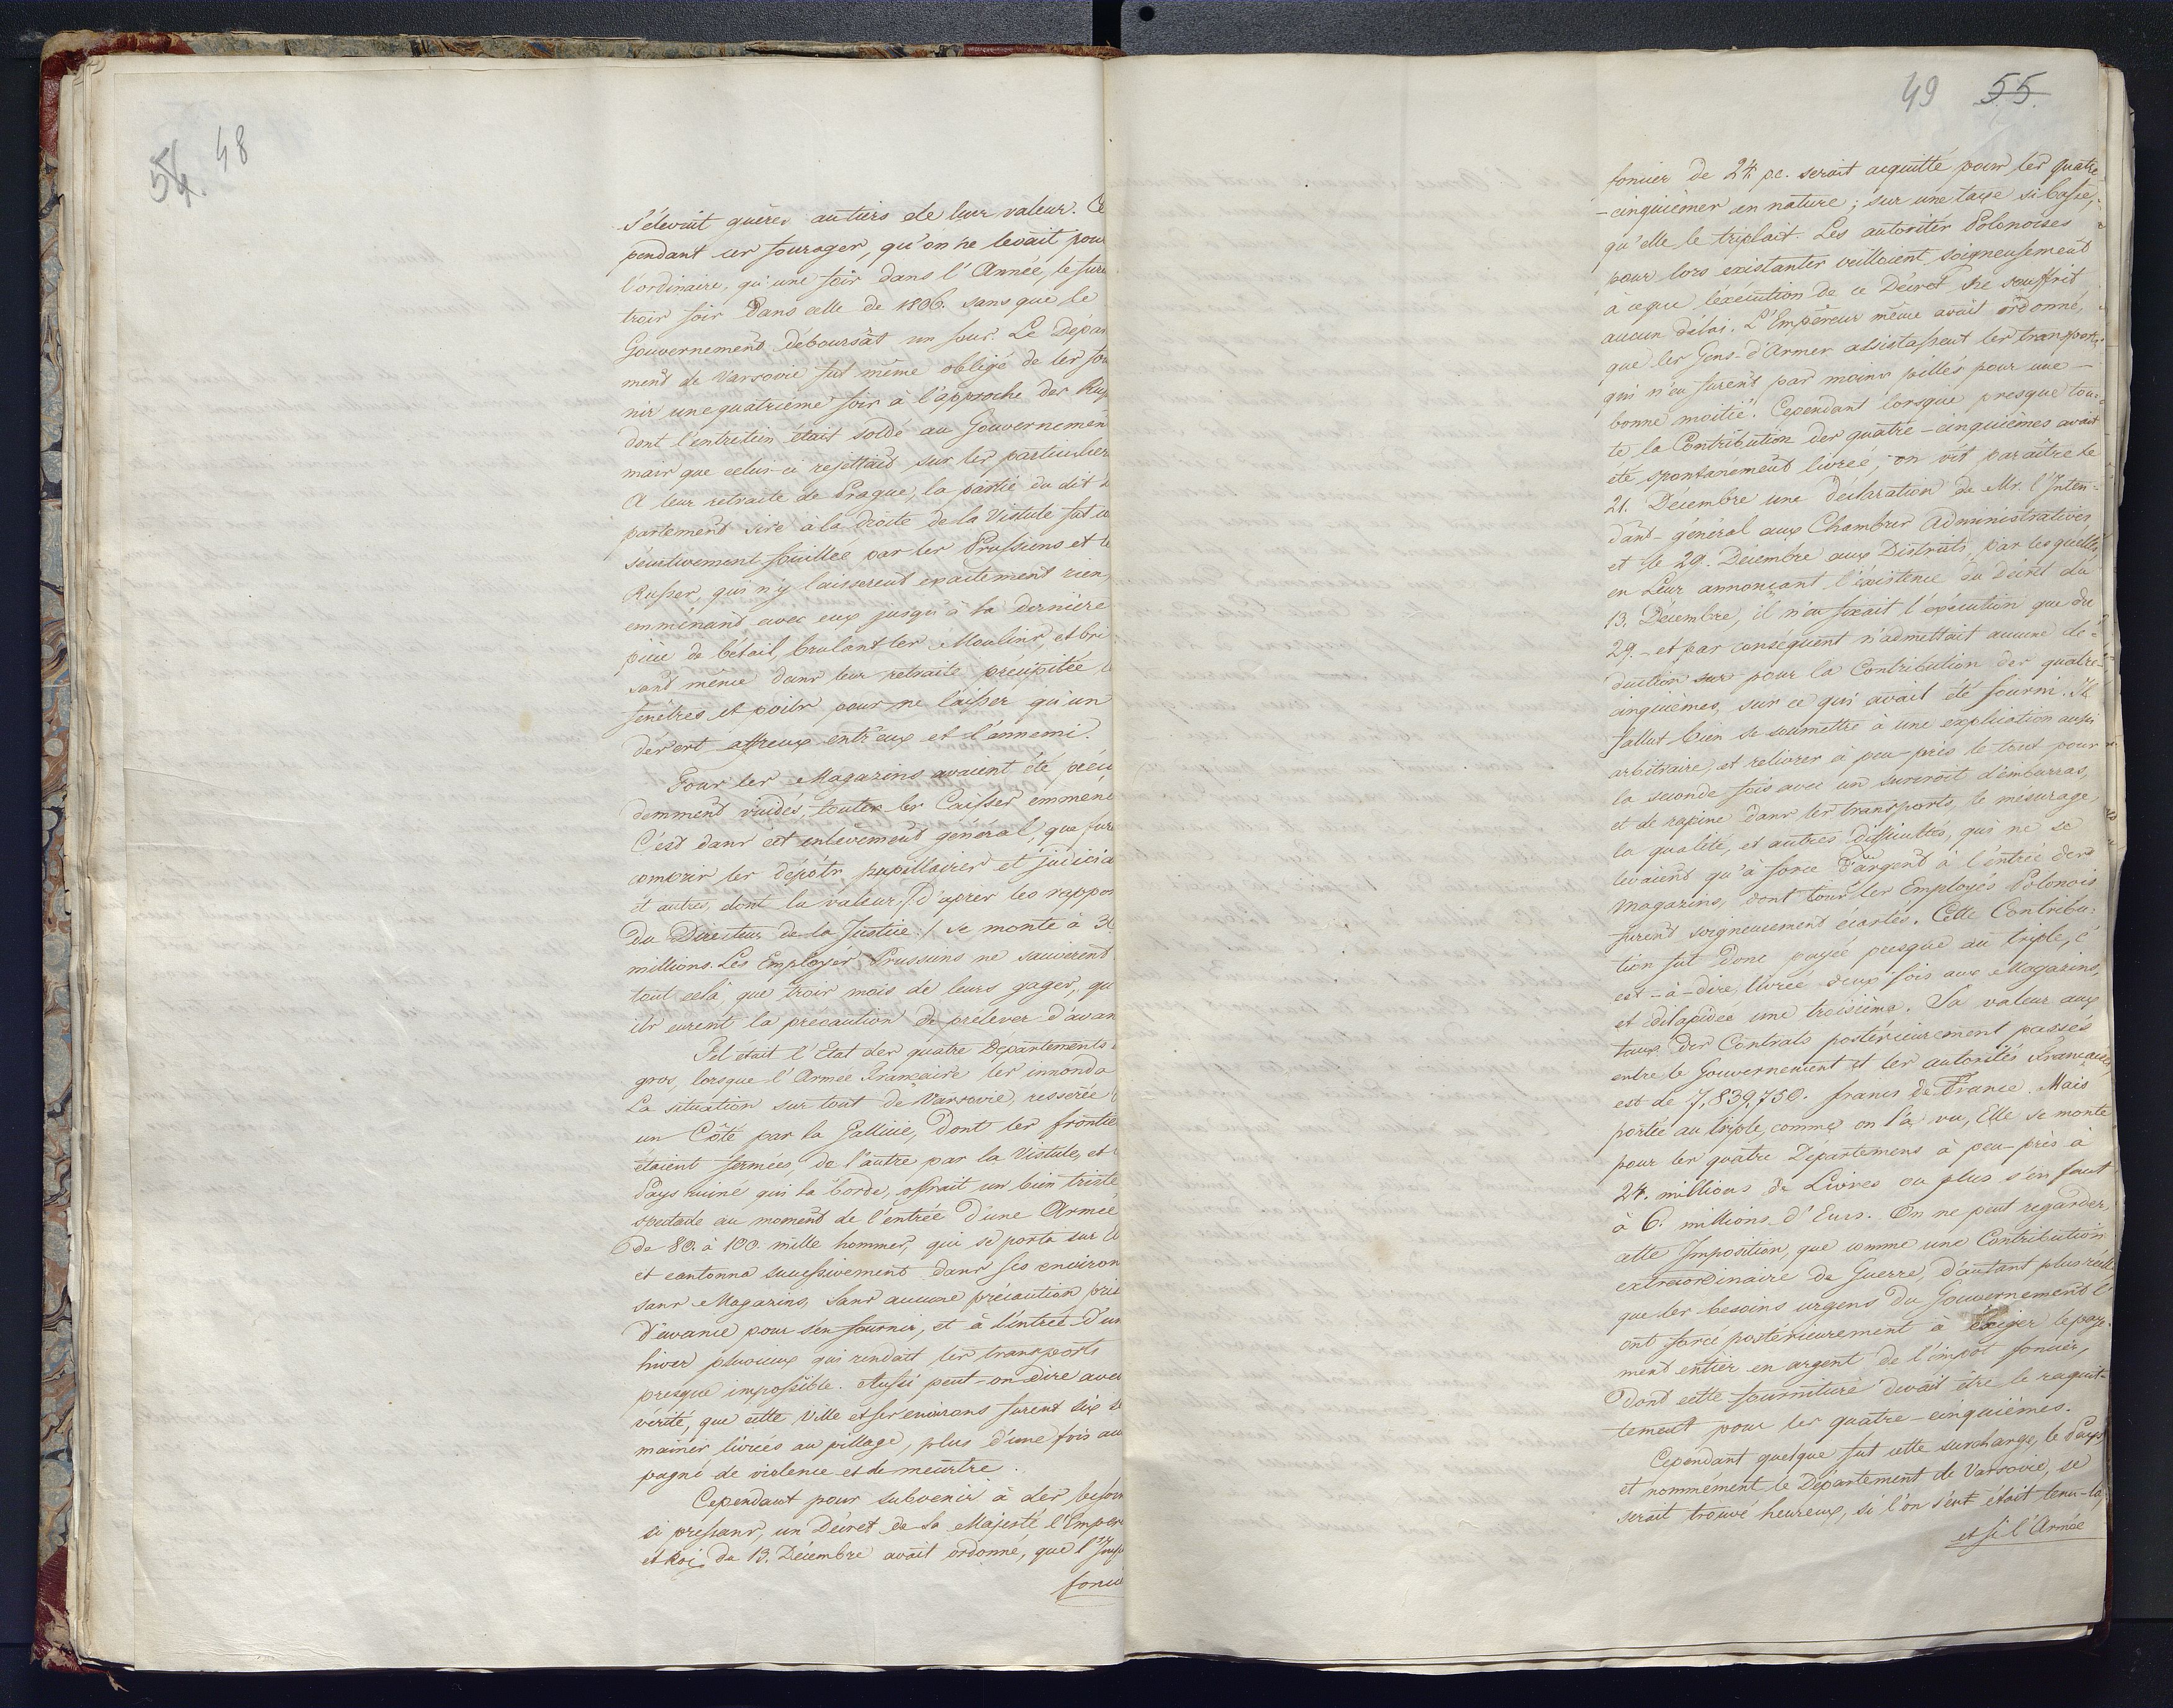 54. 48
s'élevait guères au tiers de leur valeur. Ce
pendant ces fourages, qu'on ne levait pour
l'ordinaire, qu'une fois dans l'Année, le fure
trois fois dans celle de 1806. sans que le
Gouvernement déboursât un sous. Le Dépar
ment de Varsovie fut même obligé de les four
nir une quatrième fois à l'approche des Rus
dont l'entretien était soldé au Gouvernemen
mais que celui-ci rejettait sur les particulier
A leur retraite de Prague, la partie du dit D
partement sise à la droite de la Vistule fut
sécutivement fouillée par les Prussiens et le
Russes, qui n'y laisserent exaitement rien,
emménant avec eux jusqu'à la dernière
pièce de bétail, brulant les Moulins, et bri
sant même dans leur retraite precipitée
fenêtres et poils pour ne laisser qu'un
désert affreux entr'eux et l'annemi.
Tour les Magazins avaient été précé
demment vuidés, toutes les Caisses emmené
C'est dans cet enlèvement général, que fure
compris les dépôts pupillaires et judicia
et autres, dont la valeur /: d'après les rappor
du Directeur de la Justice :/ se monte à 30
millions. Les Employés Prussiens ne sauvèrent
tout celà, que trois mois de leurs gages, qu
ils eurent la precaution de prélever d'avan
Tel était l'Etat des quatre Departements
gros, lorsque l'Armée Française les innonda
La situation sur tout de Varsovie, resserée
un Côté par la Gallicie, dont les frontie
étaient fermées, de l'autre par la Vistule, et
Pays ruiné qui la borde, offrait un bien triste
spectacle au moment de l'entrée d'une Armée
de 80. à 100. mille hommes, qui se porta sur
et cantonna successivement dans ses environ
sans Magazins, sans aucune précaution pris
d'avance pour s'en fournir, et à l'entrée d'un
hiver pluvieux qui rendait les transports
presque impossible. Aussi peut-on dire avec
vérité, que cette Ville et ses environs furent six se
maines livrés au pillage, plus d'une fois
pagné de violence et de meurtre.
Cependant pour subvenir à des besoin
si pressans, un Décret de Sa Majesté l'Emper
et Roi, du 13. Décembre avait ordonné, que l'Imp
foncié
49 55.
foncier de 24 p.c. serait acquitté pour les quatre
-cinquièmes en nature; sur une taxe si basse,
qu'elle le triplait. Les autorités Polonoises
pour lors existantes veilloient soigneusement
a ceque l'éxécution de ce Décret ne souffrit
aucun délai. L'Empereur même avait ordonné,
que les Gens-d'Armes assistassent les transports,
qui n'en furent pas moins pillés pour une —
bonne moitié. Cependant lorsque presque tou=
te la Contribution des quatre-cinquièmes avait
été spontanément livrée, on vit paraître le
21. Décembre une déclaration de Mr. l'Inten=
dant-général aux Chambres Administratives
et le 29. Decembre aux Districts, par lesquelles,
en Leur annonçant l'éxistence du décret du
13. Décembre, il n'en fixait l'exécution que du
29. et par conséquent n'admettait aucune dé=
duction sur pour la Contribution des quatre-
cinquièmes, sur ce qui avait été fourni. Il
fallut bien se soumettre à une explication aussi
arbitraire, et relivrer à peu-près le tout pour
la seconde fois avec un surcroit d'embarras,
et de rapine dans les transports, le mésurage,
la qualité, et autres difficultés, qui ne se
levaient qu'à force d'argent à l'entrée des
magazins, dont tous les Employés Polonois
furent soigneusement écartés. Cette Contribu=
tion fut donc payée presque au triple, c'
est-à-dire, livrée deux fois aux Magazins,
et dilapidée une troisième. Sa valeur aux
taux des Contrats postérieurement passés
entre le Gouvernement et les autorités Françaises
est de 7,839,750. francs de France. Mais
portée au triple, comme on l'a vu, Elle se monte
pour les quatre Départemens à peu-près à
24. millions de Livres ou plus s'en faut
à 6. millions d'Eurs. On ne peut regarder
cette Imposition, que comme une Contribution
extraordinaire de Guerre, d'autant plus réelle
que les besoins urgens du Gouvernement l'
ont forcé postérieurement à éxiger le paye-
ment entier en argent de l'impôt foncier,
dont cette fourniture devait être le raquit-
tement pour les quatre-cinquièmes.
Cependant quelque fut cette surcharge, le Pays
et nommément le Département de Varsovie, se
serait trouvé heureux, si l'on s'eut était tenu-là
et si l'Armée